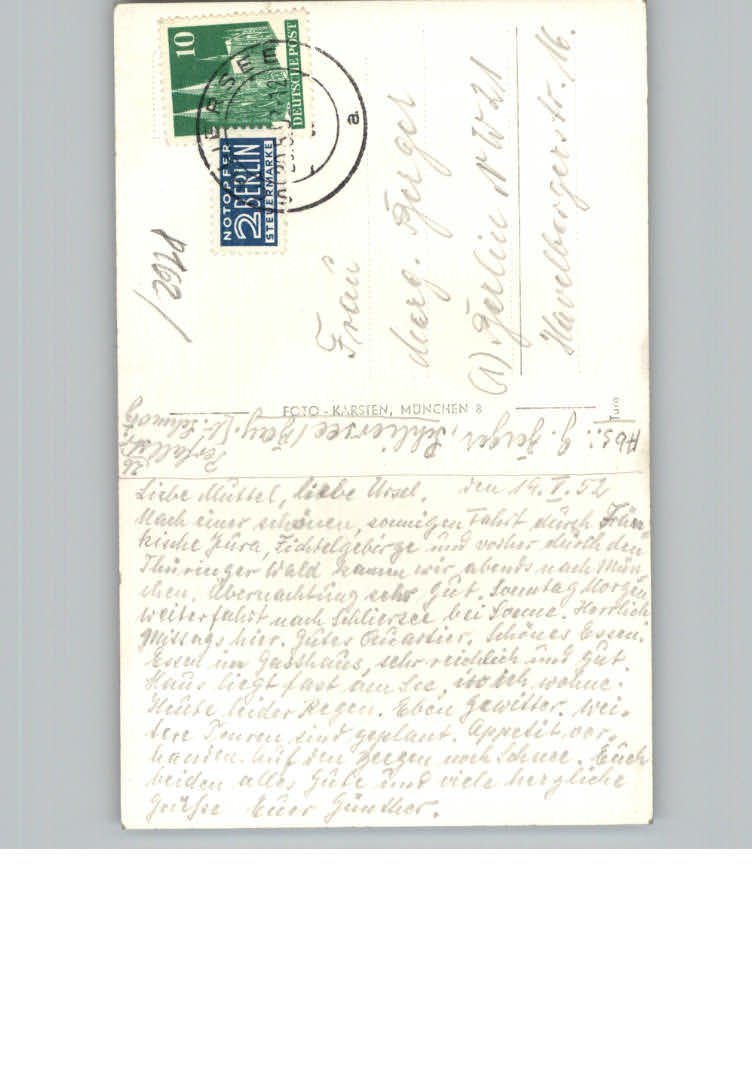 10
DEUTSCHE POST
NOTOPFER
2 BERLIN
STEUERMARKE
SCHLIERSEE
a
Frau
Marg. Berger
(1) Berlin NW 21
Havelbergerstr. 16.
FOTO - KARSTEN, MÜNCHEN 8
Turo
Abs.: G. Berger, Schliersee/Bay.
Liebe Muttel, liebe Ursel. den 19. V. 52
Nach einer schönen, sonnigen Fahrt durch Frän-
kische Jura, Fichtelgebirge und vorher durch den
Thüringer Wald kamen wir abends nach Mün-
chen. Übernachtung sehr gut. Sonntag Morgen
Weiterfahrt nach Schliersee bei Sonne. Herrlich
hier. Gutes Quartier. Schönes Essen.
Essen im Gasthaus, sehr reichlich und gut.
Haus liegt fast am See, wo ich wohne.
Heute leider Regen. Eben Gewitter. Wei-
tere Touren sind geplant. Appetit vor-
handen. Auf den Bergen noch Schnee. Euch
beiden alles Gute und viele herzliche
Grüsse Euer Günther.